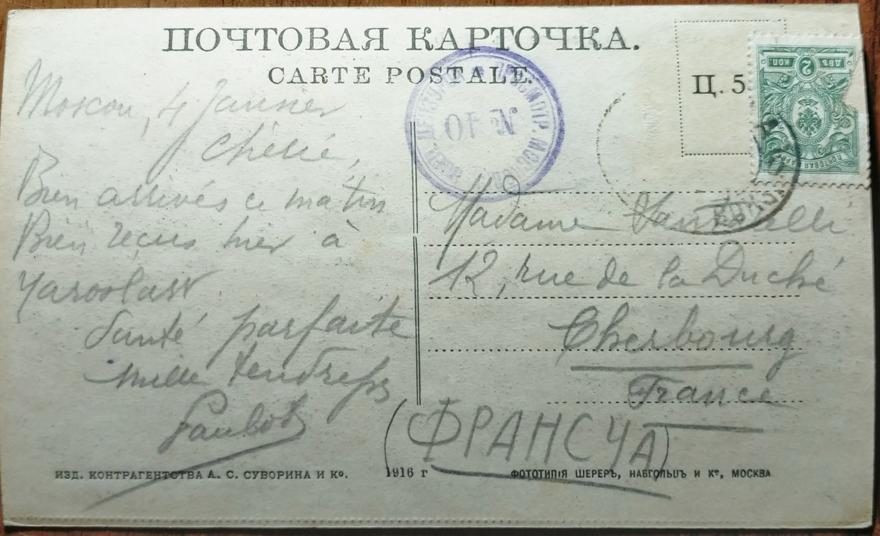 ПОЧТОВАЯ КАРТОЧКА.
CARTE POSTALE.
Ц. 5
2
КОП
№ 10
Moscou, 4 Janvier
Chérie,
Bien arrivés ce matin
Bien reçus hier à
Yaroslaw
Santé parfaite
Mille tendresses
Madame
12, rue de la Duché
Cherbourg
France
(ФРАНСУА)
ИЗД. КОНТРАГЕНТСТВА А. С. СУВОРИНА И Кº.
1916 г
ФОТОТИПІЯ ШЕРЕРЪ, НАБГОЛЬЦЪ И Кº, МОСКВА